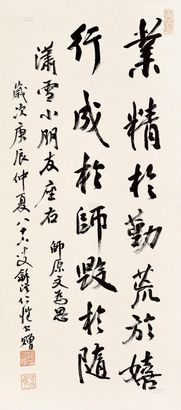 業精於勤荒於嬉
行成於師毀於隨
師原文為思
瀟雪小朋友座右
歲次庚辰仲夏八十六叟